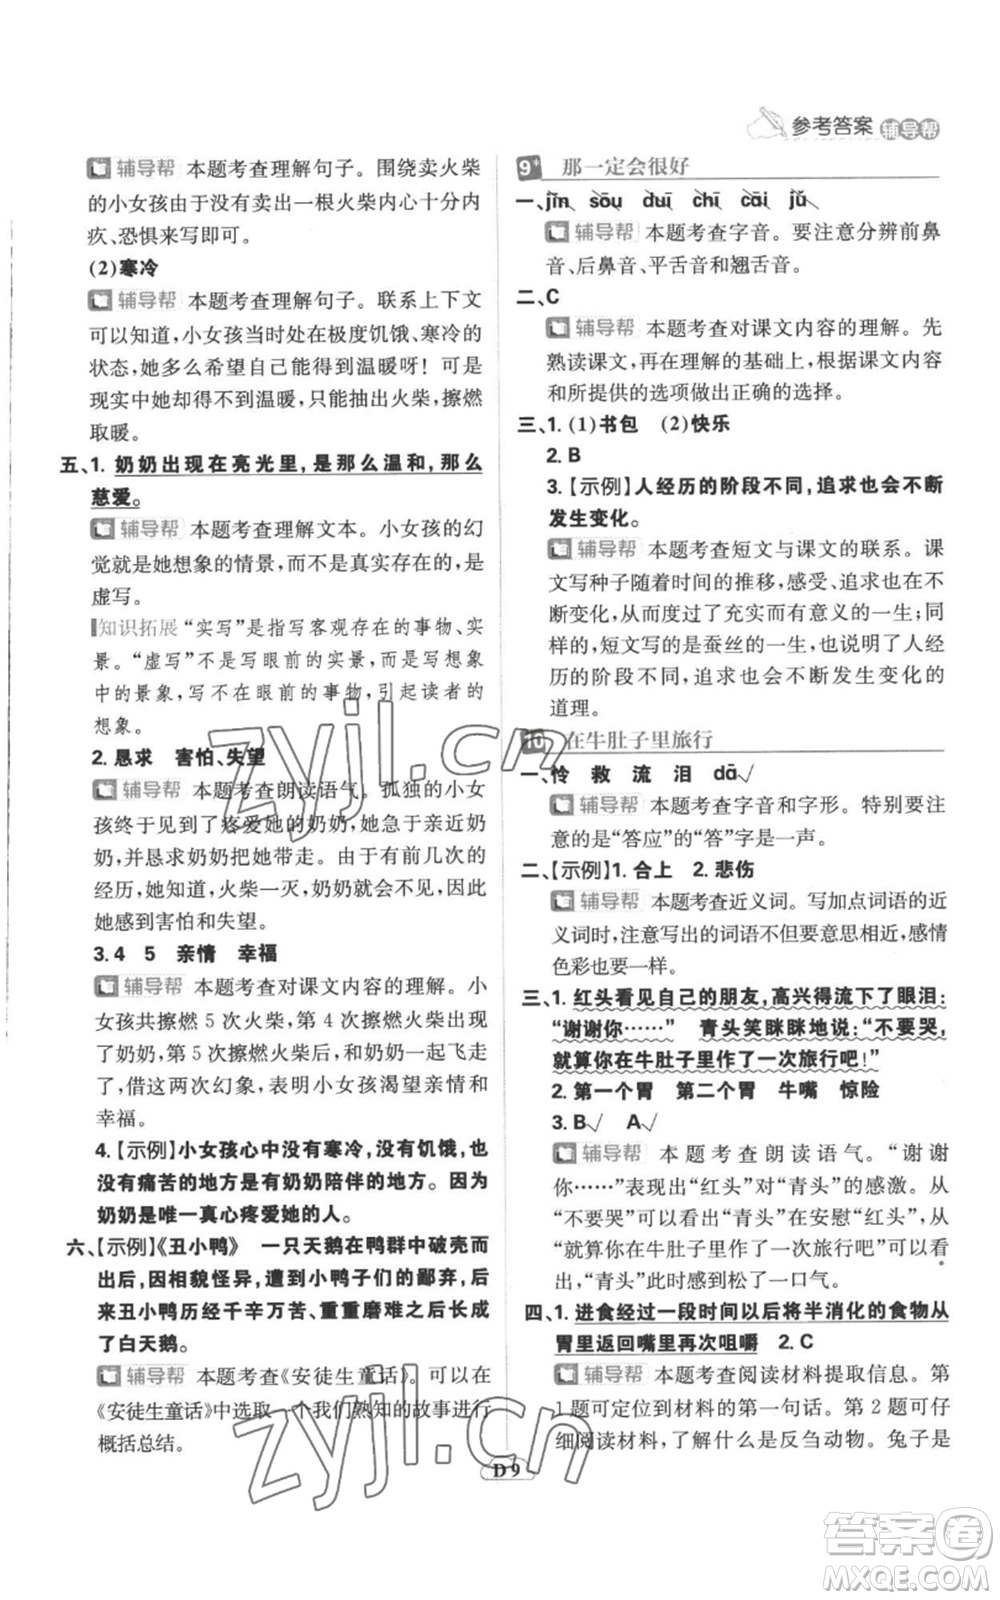 参考答案 辅导帮
辅导帮 本题考查理解句子。围绕卖火柴
的小女孩因为没有卖出一根火柴内心十分内
疚、恐惧来写即可。
(2)寒冷
辅导帮 本题考查理解句子。联系上下文
可以知道,小女孩当时处在极度饥饿、寒冷的
状态,她多么希望自己能得到温暖呀！可是
现实中她却得不到温暖,只能抽出火柴,擦燃
取暖。
五、1. 奶奶出现在亮光里,是那么温和,那么
慈爱。
辅导帮 本题考查理解文本。小女孩的幻
觉就是她想象的情景,不是真实发生的,是
虚写。
知识拓展 “实写”是指写客观存在的事物、实
景。“虚写”不是写眼前的实景,而是写想象
中的景象,写不在眼前的事物,引起读者的
想象。
2. 恳求 害怕、失望
辅导帮 本题考查朗读语气。孤独的小女
孩终于见到了疼爱她的奶奶,她急于亲近奶
奶,并恳求奶奶把她带走。由于有前几次的
经历,她知道,火柴一灭,奶奶就会不见,因此
她感到害怕和失望。
3. 4 5 亲情 幸福
辅导帮 本题考查对课文内容的理解。小
女孩共擦燃 5 次火柴,第 4 次擦燃火柴出现
了奶奶,第 5 次擦燃火柴后,和奶奶一起飞走
了,借这两次幻象,表明小女孩渴望亲情和
幸福。
4.【示例】小女孩心中没有寒冷,没有饥饿,也
没有痛苦的地方是有奶奶陪伴的地方。因为
奶奶是唯一真心疼爱她的人。
六、【示例】《丑小鸭》 一只天鹅在鸭群中破壳而
出后,因相貌怪异,遭到小鸭子们的鄙弃,后
来丑小鸭历经千辛万苦、重重磨难之后长成
了白天鹅。
辅导帮 本题考查《安徒生童话》。可以在
《安徒生童话》中选取一个我们熟知的故事进行
概括总结。
9* 那一定会很好
一、jīn sōu duī chī cāi jǔ
辅导帮 本题考查字音。要注意分辨前鼻
音、后鼻音、平舌音和翘舌音。
二、C
辅导帮 本题考查对课文内容的理解。先
熟读课文,再在理解的基础上,根据课文内容
和所提供的选项做出正确的选择。
三、1. (1)书包 (2)快乐
2. B
3.【示例】人经历的阶段不同,追求也会不断
发生变化。
辅导帮 本题考查短文与课文的联系。课
文写种子随着时间的推移,感受、追求也在不
断变化,从而度过了充实而有意义的一生;同
样的,短文写的是蚕丝的一生,也说明了人经
历的阶段不同,追求也会不断发生变化的
道理。
10 在牛肚子里旅行
一、怜 救 流 泪 dā√
辅导帮 本题考查字音和字形。特别要注
意的是“答应”的“答”字是一声。
二、【示例】1. 合上 2. 悲伤
辅导帮 本题考查近义词。写加点词语的近
义词时,注意写出的词语不仅要意思相近,感情
色彩也要一样。
三、1. 红头看见自己的朋友,高兴得流下了眼泪:
“谢谢你……” 青头笑眯眯地说:“不要哭,
就算你在牛肚子里作了一次旅行吧!”
2. 第一个胃 第二个胃 牛嘴 惊险
3. B√ A√
辅导帮 本题考查朗读语气。“谢谢
你……”表现出“红头”对“青头”的感激。从
“不要哭”可以知道“青头”在安慰“红头”,从
“就算你在牛肚子里作了一次旅行吧”可以看
出,“青头”此时感到松了一口气。
四、1. 进食经过一段时间以后将半消化的食物从
胃里返回嘴里再次咀嚼 2. C
辅导帮 本题考查阅读材料提取信息。第
1 题可定位到材料的第一句话。第 2 题可仔
细阅读材料,了解什么是反刍动物。兔子是
D 9
zyjl.cn
zyjl.cn
答案圈
MXQE.COM